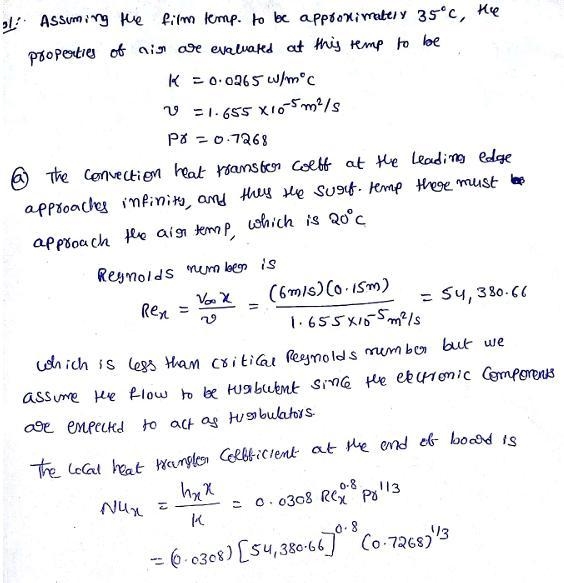 Sol:- Assuming the film temp. to be approximately 35°C, the
properties of air are evaluated at this temp to be
K = 0.0265 W/m°C
ν = 1.655 x10⁻⁵ m²/s
Pr = 0.7268
(a) The convection heat transfer coeff at the leading edge
approaches infinity, and thus the surf. temp there must
approach the air temp, which is 20°C
Reynolds number is
Reₓ = V∞ x / ν = (6m/s)(0.15m) / 1.655 x10⁻⁵ m²/s = 54,380.66
which is less than critical Reynolds number but we
assume the flow to be turbulent since the electronic components
are expected to act as turbulators.
The local heat transfer coefficient at the end of board is
Nuₓ = hₓx / K = 0.0308 Reₓ^0.8 Pr^1/3
= (0.0308) [54,380.66]^0.8 (0.7268)^1/3